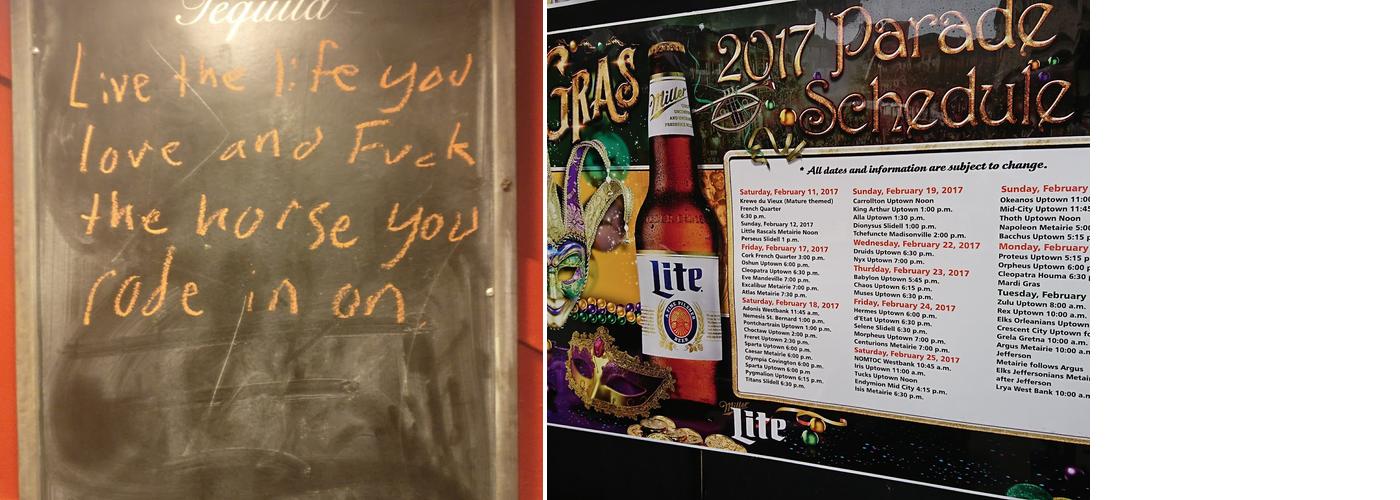 Tequila
Live the life you
love and Fuck
the horse you
rode in on.
GRAS
2017 Parade
Schedule
Miller
Lite
* All dates and information are subject to change.
Saturday, February 11, 2017
Krewe du Vieux (Mature themed)
French Quarter
6:30 p.m.
Sunday, February 12, 2017
Little Rascals Metairie Noon
Perseus Slidell 1 p.m.
Friday, February 17, 2017
Cork French Quarter 3:00 p.m.
Oshun Uptown 6:00 p.m.
Cleopatra Uptown 6:30 p.m.
Eve Mandeville 7:00 p.m.
Excalibur Metairie 7:00 p.m.
Atlas Metairie 7:30 p.m.
Saturday, February 18, 2017
Adonis Westbank 11:45 a.m.
Nemesis St. Bernard 1:00 p.m.
Pontchartrain Uptown 1:00 p.m.
Choctaw Uptown 2:00 p.m.
Freret Uptown 2:30 p.m.
Sparta Uptown 6:00 p.m.
Caesar Metairie 6:00 p.m.
Olympia Covington 6:00 p.m.
Sparta Uptown 6:00 p.m
Pygmalion Uptown 6:15 p.m.
Titans Slidell 6:30 p.m.
Sunday, February 19, 2017
Carrollton Uptown Noon
King Arthur Uptown 1:00 p.m.
Alla Uptown 1:30 p.m.
Dionysus Slidell 1:00 p.m.
Tchefuncte Madisonville 2:00 p.m.
Wednesday, February 22, 2017
Druids Uptown 6:30 p.m.
Nyx Uptown 7:00 p.m.
Thursday, February 23, 2017
Babylon Uptown 5:45 p.m.
Chaos Uptown 6:15 p.m.
Muses Uptown 6:30 p.m.
Friday, February 24, 2017
Hermes Uptown 6:00 p.m.
d'Etat Uptown 6:30 p.m.
Selene Slidell 6:30 p.m.
Morpheus Uptown 7:00 p.m.
Centurions Metairie 7:00 p.m.
Saturday, February 25, 2017
NOMTOC Westbank 10:45 a.m.
Iris Uptown 11:00 a.m.
Tucks Uptown Noon
Endymion Mid City 4:15 p.m.
Isis Metairie 6:30 p.m.
Sunday, February
Okeanos Uptown 11:00
Mid-City Uptown 11:45
Thoth Uptown Noon
Napoleon Metairie 5:00
Bacchus Uptown 5:15 p
Monday, February
Proteus Uptown 5:15 p
Orpheus Uptown 6:00 p
Cleopatra Houma 6:30 p
Mardi Gras
Tuesday, February
Zulu Uptown 8:00 a.m.
Rex Uptown 10:00 a.m.
Elks Orleanians Uptown
Crescent City Uptown fo
Grela Gretna 10:00 a.m.
Argus Metairie 10:00 a.m
Jefferson
Metairie follows Argus
Elks Jeffersonians Metai
after Jefferson
Lrya West Bank 10:00 a.m
Miller
Lite